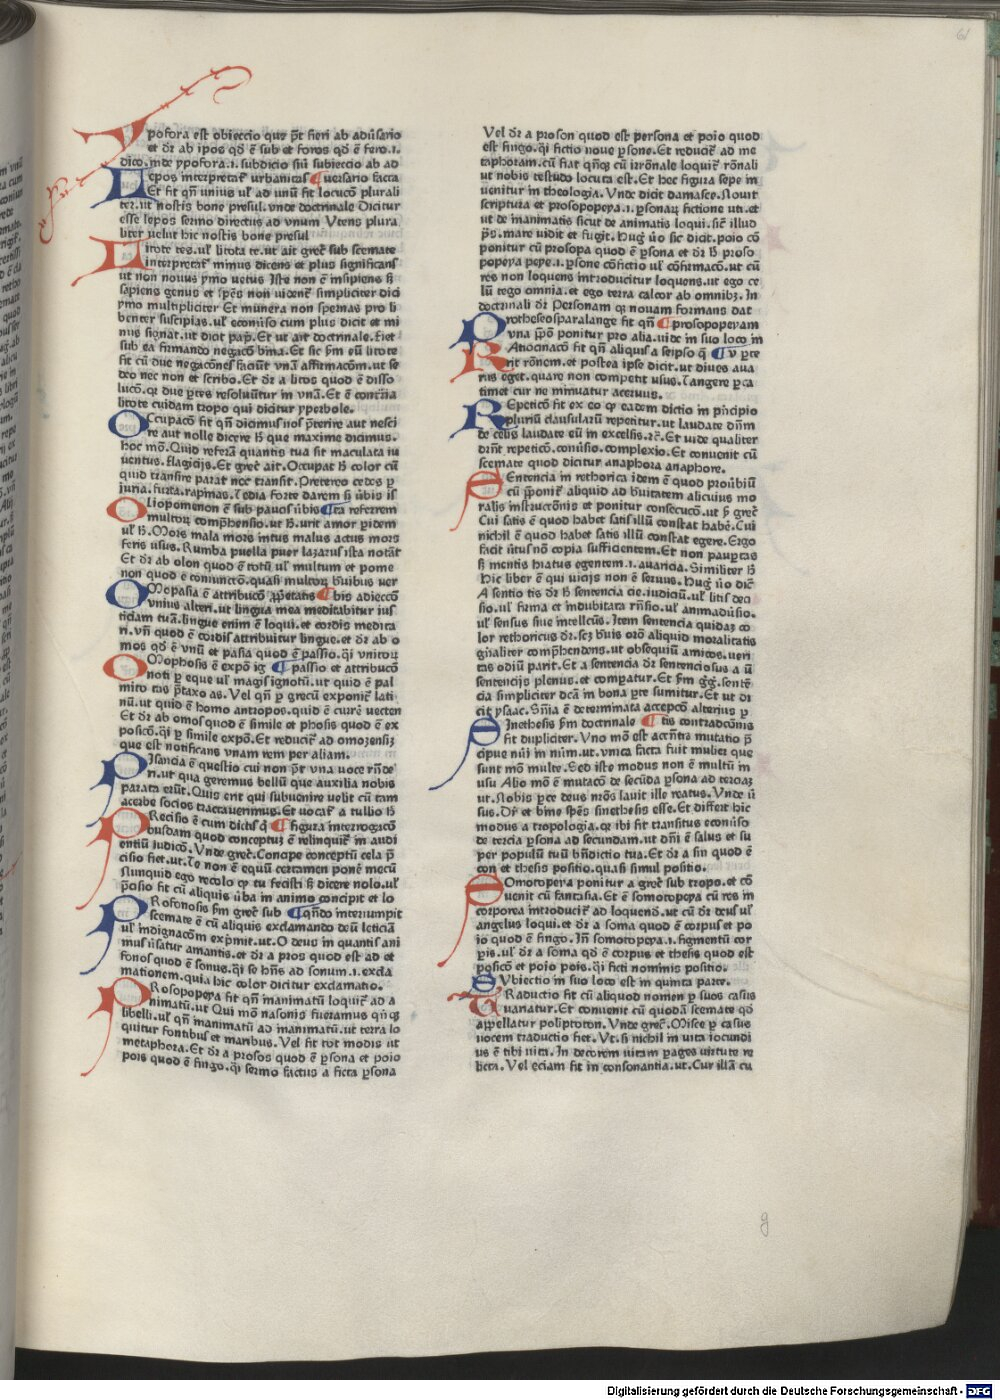 61
Ypofora est obieccio que pr̄t fieri ab adūsario
et dr̄ ab ipos qd̄ ē sub et foros qd̄ ē fero .i.
dico. inde ypofora .i. subdicio siū subieccio ab ad
Lepos interpretat᷑ urbanitas ¶ uersario facta
Et fit qn̄ unius ul᷑ ad unū fit locucō plurali
ter. ut nostis bone presul. vnde doctrinale Dicitur
esse lepos sermo directus ad vnum Vtens plura
liter uelut hic nostis bone presul
Litote tes. ul᷑ litota te. ut ait grec᷑ sub scemate
interpretat᷑ minus dicens et plus significans
ut non nouus ymo uetus Iste non ē insipiens s̄
sapiens genus et sp̄es non uident᷑ simpliciter dici
ymo multipliciter Et munera non spernas pro li
benter suscipias. ul᷑ econūso cum plus dicit et mi
nus signat. ut dicit pap̄. Et ut ait doctrinale. Fiet
sub ea firmando negacō bina. Et sic s̄m eū litote
fit cū due negacōnes faciūt vnā affirmacōm. ut se
deo nec non et scribo. Et dr̄ a litos quod ē disso
lucō. qr due p̄tes resoluūtur in vnā. Et ē contraria
litote cuidam tropo qui dicitur yperbole.
Occupacō fit qn̄ dicimus nos p̄terire aut nesci
re aut nolle dicere h̄ que maxime dicimus.
hoc mō. Quid referā quantis tua sit maculata iu
uentus. flagicijs. Et grec᷑ ait. Occupat h̄ color cū
quid transire parat nec transit. Pretereo cedes p̄
iuria. furta. rapinas. Tedia forte darem si ūbis is
Oliopomenon ē sub paucis ūbis ¶ ta referrem
multor᷑ comp̄hensio. ut h̄. urit amor pridem
ul᷑ h̄. Mors mala mors intus malus actus mors
foris usus. Rumba puella puer lazarus ista notāt
Et dr̄ ab olon quod ē totū ul᷑ multum et pome
non quod ē coniunctō. quasi multor᷑ b̄uibus uer
Omopasia ē attribucō p̄prietatis ¶ bis adieccō
vnius alteri. ut lingua mea meditabitur ius
ticiam tuā. lingue enim ē loqui. et cordis medita
ri. vn̄ quod ē cordis attribuitur lingue. et dr̄ ab o
mos qd̄ ē vnū et pasia quod ē passio. qi vnitor᷑
Omophosis ē expō ig ¶ passio et attribucō
noti p̄ eque ul᷑ magis ignotū. ut quid ē pal
miro tas p̄taxo as. Vel qn̄ p̄ grecū exponit᷑ lati
nū. ut quid ē homo antropos. quid ē currē uecten
Et dr̄ ab omos quod ē simile et phosis quod ē ex
posicō. qi p̄ simile expō. Et reducit᷑ ad omozensiʒ
que est notificans vnam rem per aliam.
Pisancia ē questio cui non pr̄t vna uoce rn̄de
ri. ut qua geremus bellū que auxilia nobis
parata erūt. Quis erit qui subuenire uelit cū tam
acerbe socios tractauerimus. Et uocat᷑ a tullio h̄
Precisio ē cum dictis q̄ ¶ figura interrogacō
busdam quod conceptuʒ ē relinquit᷑ in audi
entiū iudicō. Vnde grec᷑. Concipe conceptū cela p̄
cisio fiet. ut. Te non ē equū certamen ponē mecū
Nunquid ego recolo qr tu fecisti s̄ dicere nolo. ul᷑
p̄cisio fit cū aliquis ūba in animo concipit et lo
Prosonosis s̄m grec᷑ sub ¶ qn̄do interrumpit
scemate ē cū aliquis exclamando deū leticiā
ul᷑ indignacōm exp̄mit. ut. O deus in quantis ani
mus ūsatur amantis. et dr̄ a pros quod est ad et
fonos quod ē sonus. qi se hn̄s ad sonum .i. excla
mationem. quia hic color dicitur exclamatio.
Prosopopeya fit qn̄ inanimatū loquit᷑ ad a
nimatū. ut Qui mō nasonis fueramus qn̄qʒ
libelli. ul᷑ qn̄ inanimatū ad inanimatū. ut terra lo
quitur fontibus et maribus. Vel fit tot modis ut
metaphora. Et dr̄ a prosos quod ē p̄sona et poio
pois quod ē fingo. qi sermo factus a ficta p̄sona
Vel dr̄ a proson quod est persona et poio quod
est fingo. qi fictio noue p̄sone. Et reducit᷑ ad me
taphoram. cū fiat qn̄qʒ cū irrōnale loquit᷑ rōnali
ut nobis testudo locuta est. Et hec figura sepe in
uenitur in theologia. Vnde dicit damasce. Nouit
scriptura et prosopopeya .i. p̄sonar᷑ fictione uti. et
ut de inanimatis sicut de animatis loqui. sic᷑ illud
ps̄. mare vidit et fugit. Hug᷑ ūo sic dicit. poio cō
ponitur cū prosopa quod ē p̄sona et dr̄ h̄ proso
popeya peye .i. p̄sone cōfictio ul᷑ cōfirmacō. ut cū
res non loquens introducitur loquens. ut ego ce
lū tego omnia. et ego terra calcor ab omnibʒ. In
doctrinali dr̄ Personam qʒ nouam formans dat
Protheseosparalange fit qn̄ ¶ prosopopeyam
vna p̄pō ponitur pro alia. vide in suo loco in
Ratiocinacō fit qn̄ aliquis a seipso q̄ ¶ v parte
rit rōnem. et postea ipse dicit. ut diues aua
rus eget. quare non competit usus. Tangere p̄ta
timet cur ne minuatur aceruus.
Repeticō fit ex eo qr eadem dictio in p̄ncipio
plurium clausularū repetitur. ut laudate dn̄m
de celis laudate eū in excelsis. ⁊c̄. Et uide qualiter
dr̄nt repeticō. conūsio. complexio. Et conuenit cū
scemate quod dicitur anaphora anaphore.
Sentencia in rethorica idem ē quod prouūbiū
cū p̄ponit᷑ aliquid ad b̄uitatem alicuius mo
ralis instruccōnis et ponitur consecucō. ut p̄ grec᷑
Cui satis ē quod habet satis illū constat habē. Cui
nichil ē quod habet satis illū constat egere. Ergo
facit ūtus nō copia sufficientem. Et non paup̄tas
s̄ mentis hiatus egentem .i. auaricia. Similiter h̄
Hic liber ē qui uicijs non ē seruus. Hug᷑ ūo dic᷑
A sentio tis dr̄ h̄ sentencia cie. iudiciū. ul᷑ litis deci
sio. ul᷑ firma et indubitata rn̄sio. ul᷑ animadūsio.
ul᷑ sensus siue intellcūs. Item sentencia quidaʒ co
lor rethoricus dr̄. sez b̄uis orō aliquid moralitatis
gn̄aliter comp̄hendens. ut obsequiū amicos. veri
tas odiū parit. Et a sentencia dr̄ sentenciosus a ū
sentencijs plenus. et comparatur. Et s̄m g̅g̅. sentē
cia simpliciter dcā in bona p̄te sumitur. Et ut di
cit ysaac. Sn̄ia ē determinata accepcō alterius p̄
Sinethesis s̄m doctrinale ¶ tis contradcōnis
fit dupliciter. Vno mō est accn̄tis mutatio p̄
cipue nūi in nūm. ut. vnica facta fuit mulier que
sunt mō multe. Sed iste modus non ē multū in
usu Alio mō ē mutacō de secūda p̄sona ad terciaʒ
ut. Nobis p̄ce deus mōs lauit ille reatus. Vnde ū
sus. Dr̄ et bine sp̄es sinethesis esse. Et differt hic
modus a tropologia. qr ibi fit transitus econūso
de tercia p̄sona ad secundam. ut dn̄i ē salus et su
per populū tuū bn̄dictio tua. Et dr̄ a sin quod ē
con et thesis positio. quasi simul positio.
Somotopeya ponitur a grec᷑ sub tropo. et cō
uenit cū fantasia. Et ē somotopeya cū res in
corporea introducit᷑ ad loquend᷑. ut cū dr̄ deus ul᷑
angelus loqui. et dr̄ a soma quod ē corpus et po
io quod ē fingo. In̄ somotopeya .i. figmentū cor
p̄is. ul᷑ dr̄ a soma qd̄ ē corpus et thesis quod est
posicō et poio pois. qi ficti nominis positio.
Subiectio in suo loco est in quinta parte.
Traductio fit cū aliquod nomen p̄ suos casus
uarianatur. Et conuenit cū quodā scemate qd̄
appellatur poliptoton. Vnde grec᷑. Misce p̄ casus
uocem traductio fiet. Vt. si nichil in uita iocundi
us ē tibi uita. In decorem uitam p̄ages uirtute re
licta. Vel eciam fit in consonantia. ut. Cur illā cu
g
Digitalisierung gefördert durch die Deutsche Forschungsgemeinschaft - DFG